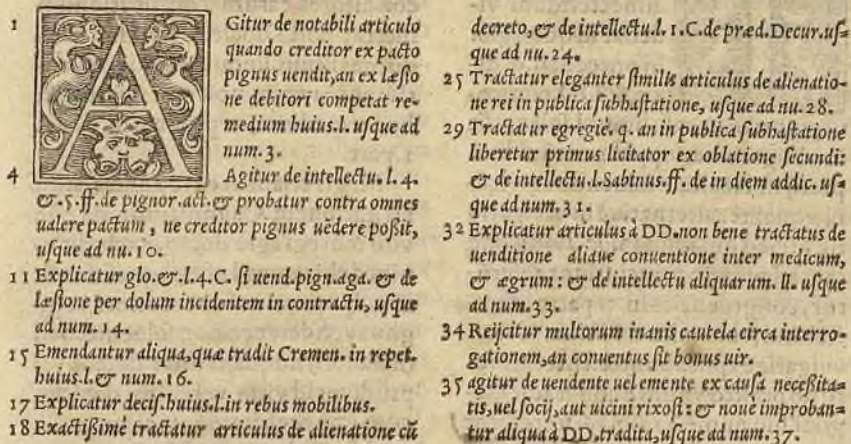 1 AGitur de notabili articulo
quando creditor ex pacto
pignus uendit,an ex læsio
ne debitori competat re-
medium huius.l. usque ad
num.3.
4 Agitur de intellectu. l. 4.
&.5.ff.de pignor.act.& probatur contra omnes
ualere pactum , ne creditor pignus uēdere poßit,
usque ad nu.10.
11 Explicatur glo.&.l.4.C. si uend.pign.aga. & de
læsione per dolum incidentem in contractu, usque
ad num.14.
15 Emendantur aliqua,quæ tradit Cremen. in repet.
huius.l.& num.16.
17 Explicatur decis.huius.l.in rebus mobilibus.
18 Exactißimè tractatur articulus de alienatione cū
decreto,& de intellectu.l.1.C.de præd.Decur.us=
que ad nu.24.
25 Tractatur eleganter similis articulus de alienatio-
ne rei in publica subhastatione, usque ad nu.28.
29 Tractatur egregiè. q. an in publica subhastatione
liberetur primus licitator ex oblatione secundi:
& de intellectu.l.Sabinus.ff. de in diem addic. us=
que ad num.31.
32 Explicatur articulus à DD.non bene tractatus de
uenditione aliaue conuentione inter medicum,
& ægrum : & de intellectu aliquarum. ll. usque
ad num.33.
34 Reijcitur multorum inanis cautela circa interro-
gationem,an conuentus sit bonus uir.
35 agitur de uendente uel emente ex causa neceßita=
tis,uel socij,aut uicini rixosi: & nouè improban=
tur aliqua à DD.tradita,usque ad num.37.